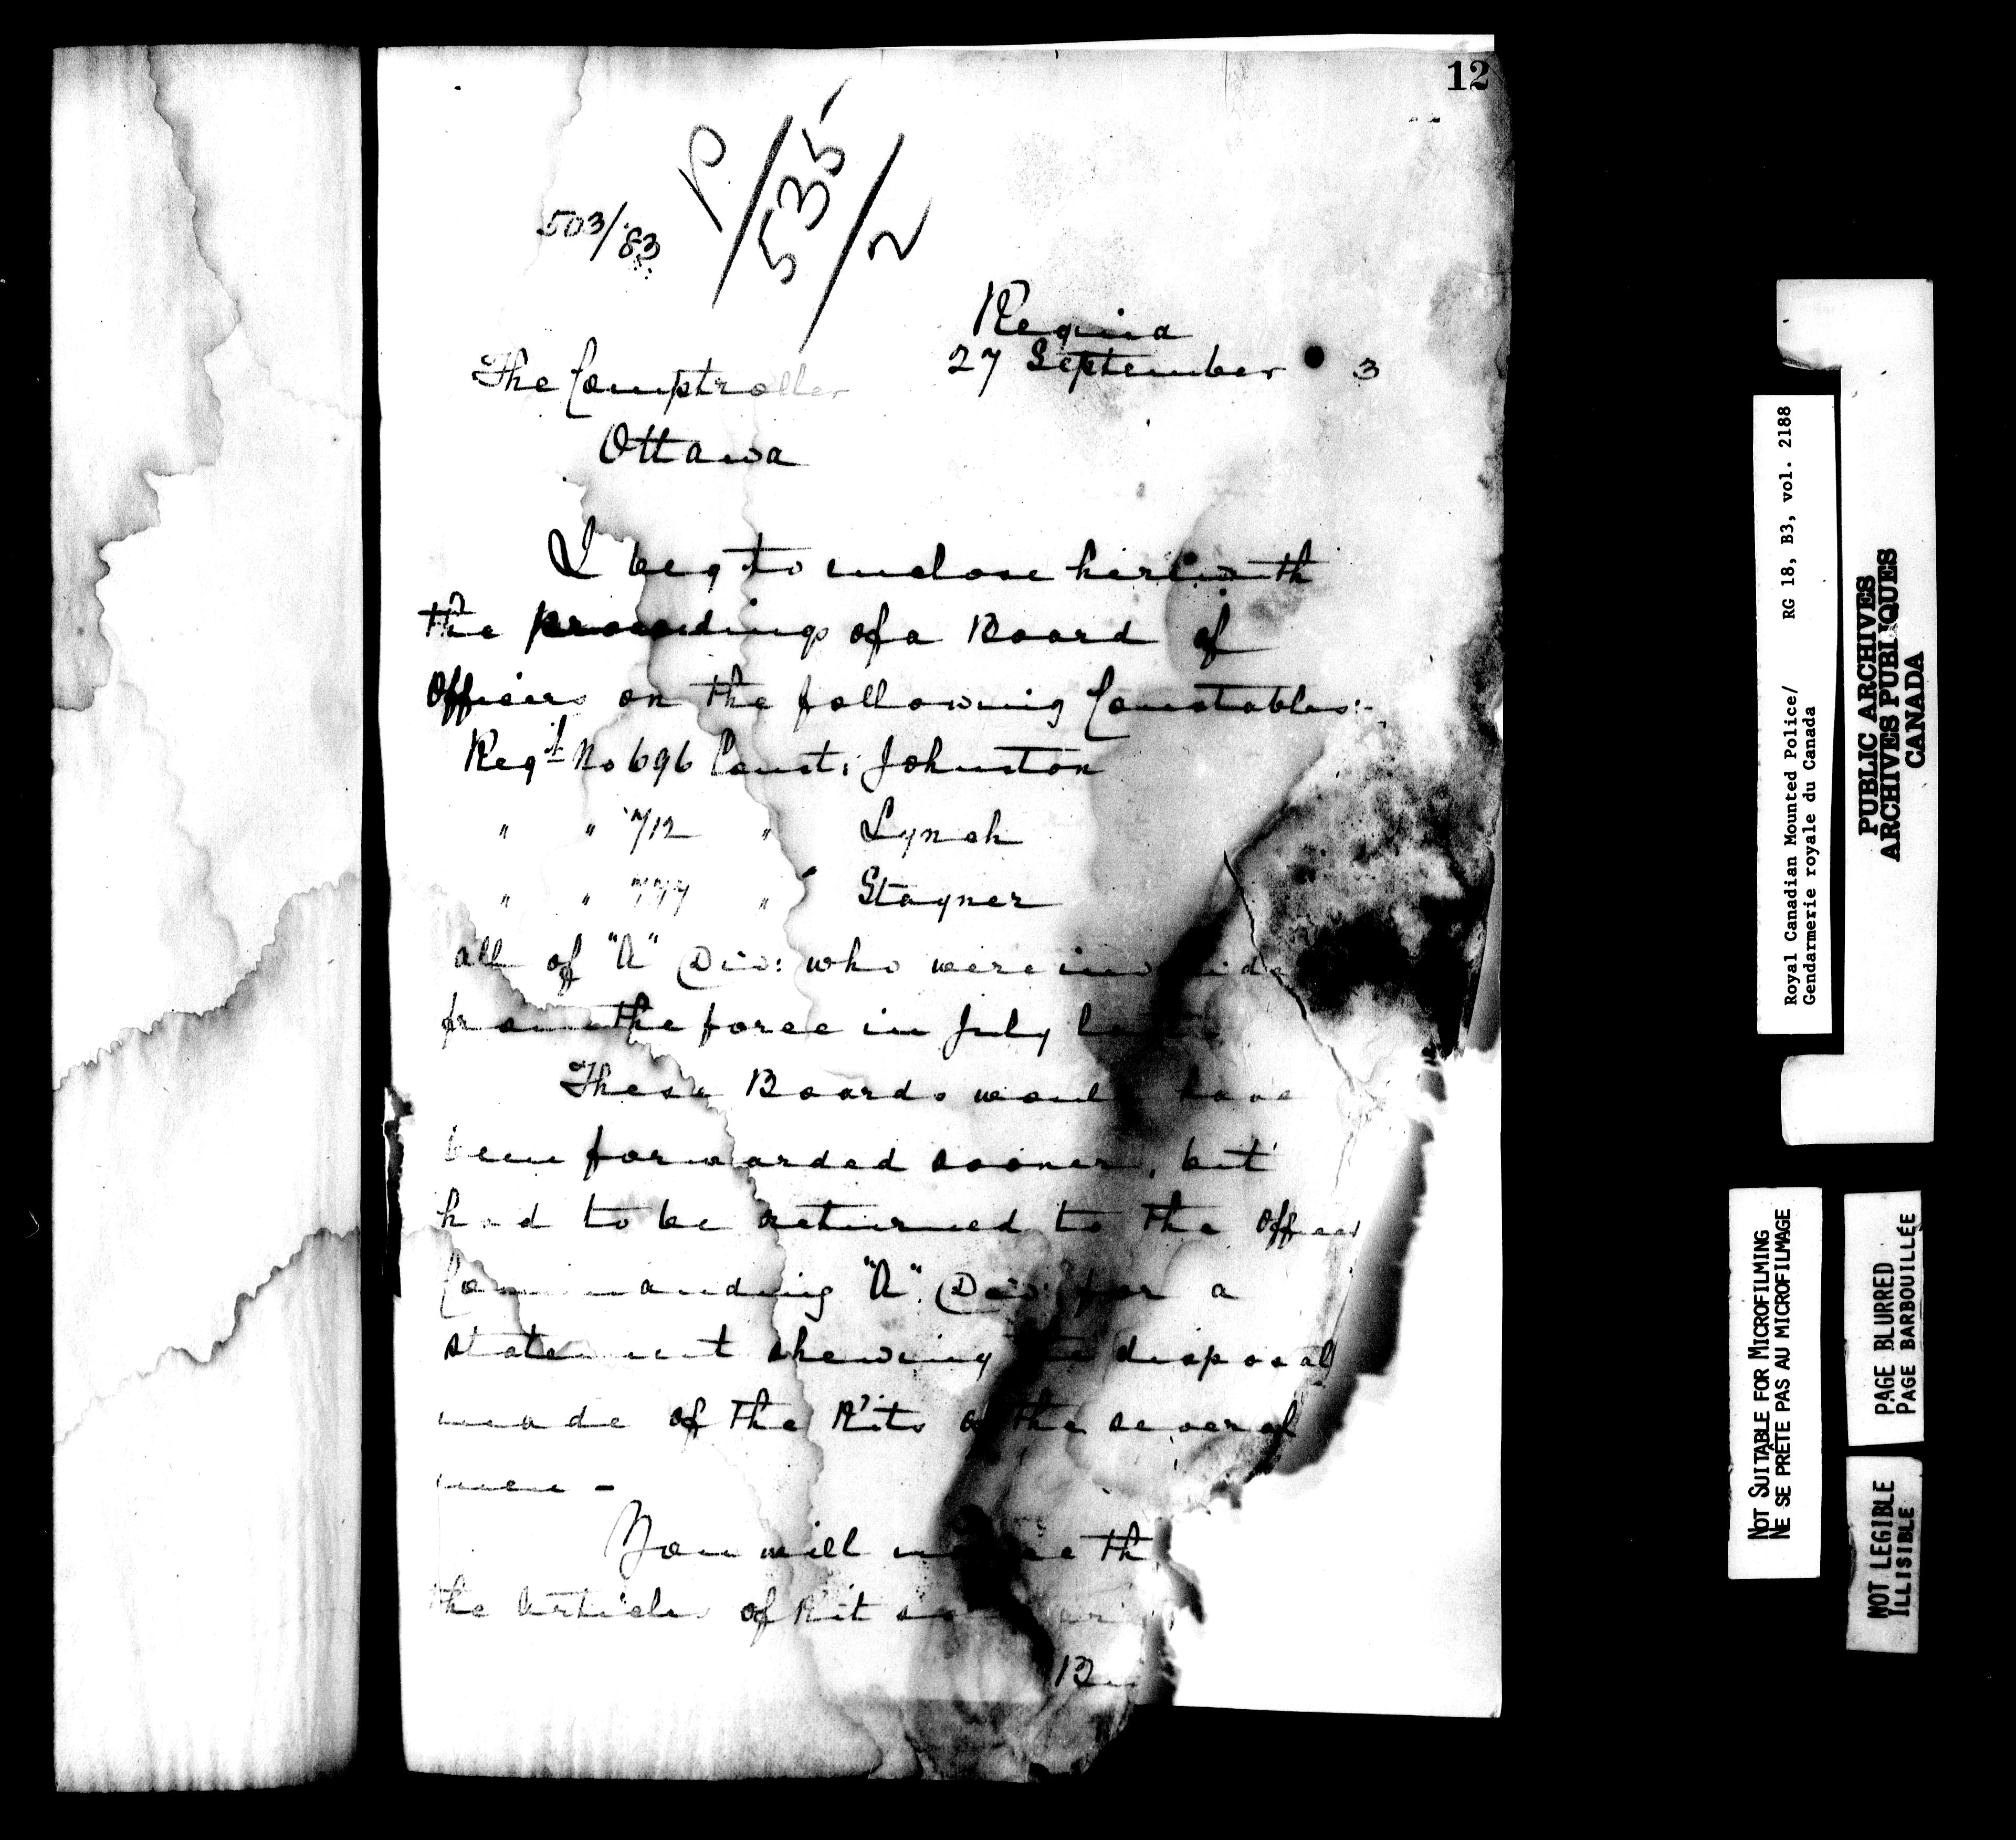 12
P/535/2
503/83
Regina
27 September 3
The Comptroller
Ottawa
I beg to enclose herewith
the proceedings of a Board of
Officers on the following Constables:-
Regt No 696 Const: Johnston
" " 712 " Lynch
" " 777 " Stagner
all of "A" Div: who were
from the force in July last
These Boards would have
been forwarded sooner, but
had to be returned to the Officer
Commanding "A" Div: for a
statement shewing the disposal
made of the Kits of the several
men -
You will th
the Articles of Kit
Royal Canadian Mounted Police/ RG 18, B3, vol. 2188
Gendarmerie royale du Canada
PUBLIC ARCHIVES
ARCHIVES PUBLIQUES
CANADA
NOT SUITABLE FOR MICROFILMING
NE SE PRÊTE PAS AU MICROFILMAGE
PAGE BLURRED
PAGE BARBOUILLÉE
NOT LEGIBLE
ILLISIBLE